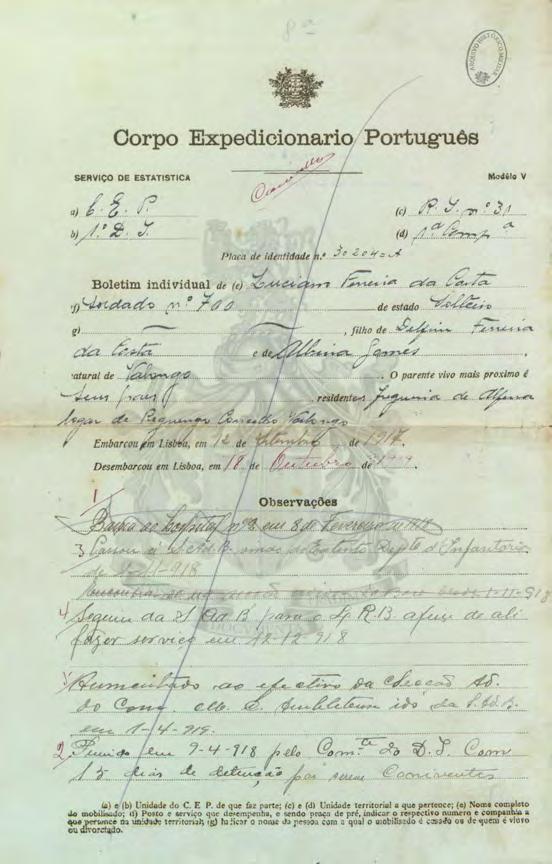 8ª
ARQUIVO HISTÓRICO MILITAR
Corpo Expedicionario Português
SERVIÇO DE ESTATISTICA
Modêlo V
a) C. E. P.
(c) R. I. nº 31
b) 1ª D. I.
(d) 1ª Compª
Placa de identidade n.º 30204-A
Boletim individual de (e) Luciano Ferreira da Costa
f) Soldado nº 700 de estado Solteiro
g) , filho de Delfim Ferreira
da Costa e de Albina Gomes
natural de Valongo . O parente vivo mais proximo é
seus paes , residentes freguesia de Alfena
logar de Concelho Valongo
Embarcou em Lisbôa, em 12 de Setembro de 1917.
Desembarcou em Lisbôa, em 18 de Outubro de 1919
Observações
1
Baixa ao Hospital nº 8 em 8 de Fevereiro de 1918
3 Infantaria
de 1-11-918
1-11-918
4 Seguiu da S Ad B para o Q R. B afim de ali
fazer serviço em 12-12-918
Aumentado ao efectivo da Secção Ad.
do Com. E. Ambleteuse ido da S. Ad. B.
em 1-4-919.
2 Punido em 9-4-918 pelo Com.te do D. I. Com
15 dias de detenção por serem Coniventes
(a) e (b) Unidade do C. E. P. de que faz parte; (c) e (d) Unidade territorial a que pertence; (e) Nome completo
do mobilisado; (f) Posto e serviço que desempenha, e sendo praça de pré, indicar o respectivo numero e companhia a
que pertence na unidade territorial; (g) Indicar o nome da pessoa com a qual o mobilisado é casado ou de quem é viuvo
ou divorciado.